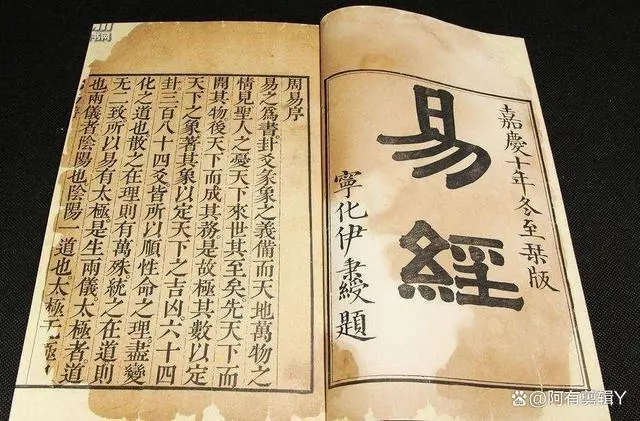 嘉慶十年冬至栞版
易經
寧化伊秉綬題
周易序
易之爲書卦爻彖象之義備而天地萬物之
情見聖人之憂天下來世其至矣先天下而
開其物後天下而成其務是故極其數以定
天下之象著其象以定天下之吉凶六十四
卦三百八十四爻皆所以順性命之理盡變
化之道也散之在理則有萬殊統之在道則
无一致所以易有太極是生兩儀太極者道
也兩儀者陰陽也陰陽一道也太極无極
书网
@阿有剪辑Y